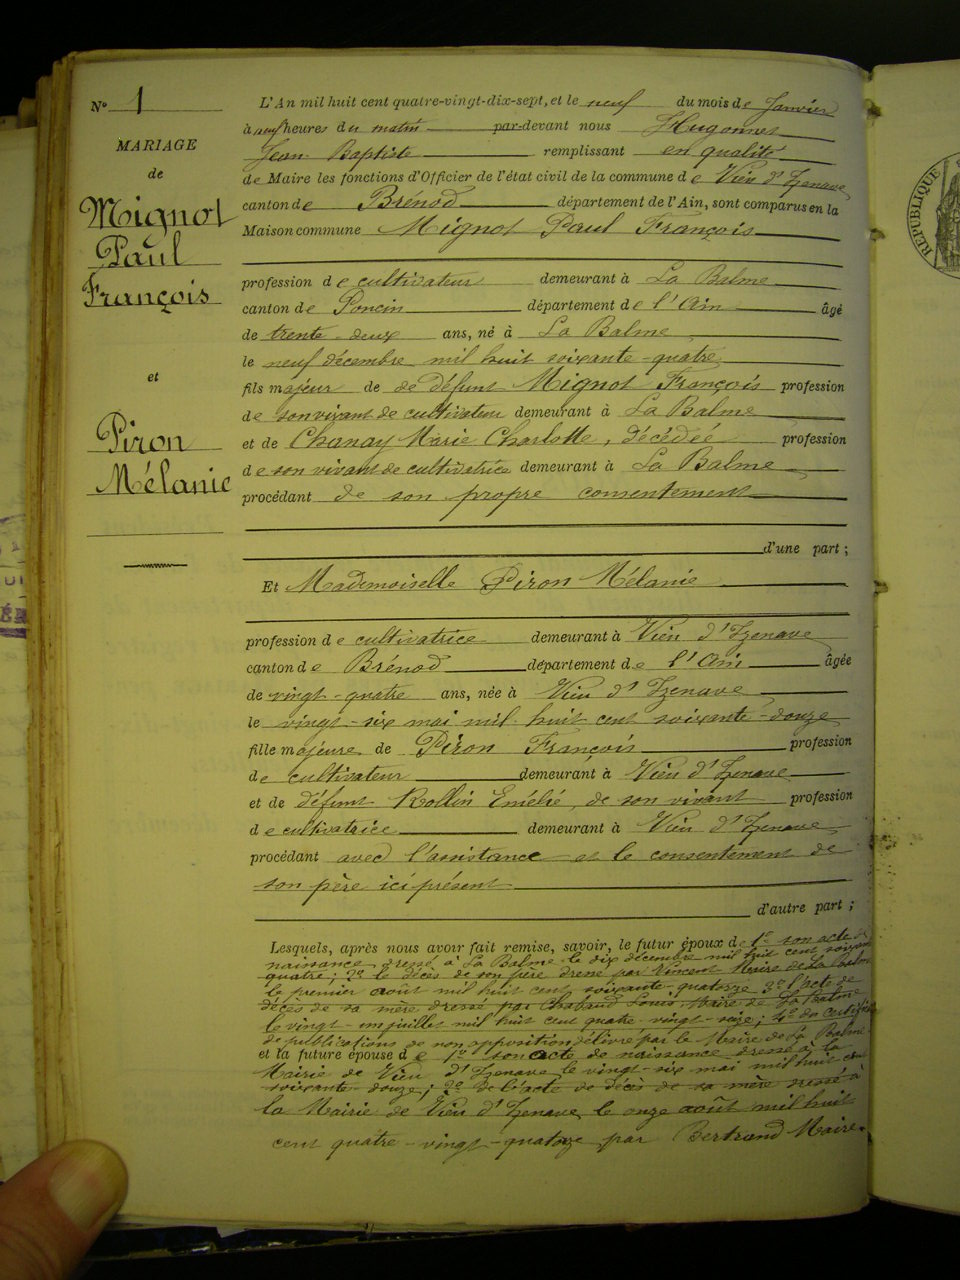 N° 1
MARIAGE
de
Mignot
Paul
François
et
Piron
Mélanie
L'An mil huit cent quatre-vingt-dix-sept, et le neuf du mois de Janvier
à neuf heures du matin par-devant nous Hugonnet
Jean Baptiste remplissant en qualité
de Maire les fonctions d'Officier de l'état civil de la commune de Vieu d'Izenave
canton de Brénod département de l'Ain, sont comparus en la
Maison commune Mignot Paul François
profession de cultivateur demeurant à La Balme
canton de Poncin département de l'Ain âgé
de trente-deux ans, né à La Balme
le neuf décembre mil huit soixante-quatre
fils majeur de de défunt Mignot François profession
de son vivant de cultivateur demeurant à La Balme
et de Chanay Marie Charlotte, décédée profession
de son vivant de cultivatrice demeurant à La Balme
procédant de son propre consentement
d'une part ;
Et Mademoiselle Piron Mélanie
profession de cultivatrice demeurant à Vieu d'Izenave
canton de Brénod département de l'Ain âgée
de vingt-quatre ans, née à Vieu d'Izenave
le vingt-six mai mil huit cent soixante-douze
fille majeure de Piron François profession
de cultivateur demeurant à Vieu d'Izenave
et de défunt Rollin Emélié, de son vivant profession
de cultivatrice demeurant à Vieu d'Izenave
procédant avec l'assistance et le consentement de
son père ici présent
d'autre part ;
Lesquels, après nous avoir fait remise, savoir, le futur époux de 1° son acte de
naissance dressé à La Balme le dix décembre mil huit cent soixante
quatre ; 2° le décès de son père dressé par Vincent Maire de La Balme
le premier août mil huit cent soixante-quatorze 3° l'acte de
décès de sa mère dressé par Chabaud Louis Maire de La Balme
le vingt-un juillet mil huit cent quatre-vingt-seize ; 4° du certificat
de publications de non opposition délivré par le Maire de La Balme
et la future épouse de 1° son acte de naissance dressé à la
Mairie de Vieu d'Izenave le vingt-six mai mil huit cent
soixante-douze ; 2° de l'acte de décès de sa mère dressé à
la Mairie de Vieu d'Izenave le onze août mil huit
cent quatre-vingt-quatorze par Bertrand Maire.
REPUBLIQUE